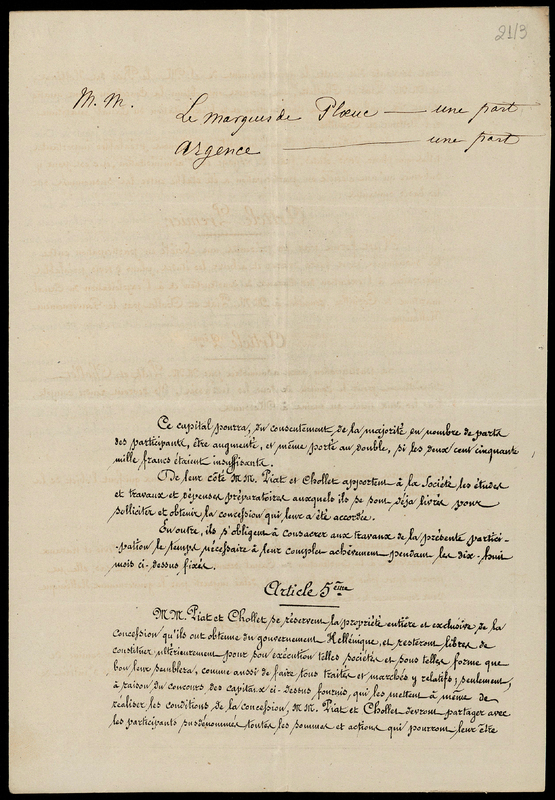 21/3
M. M. Le Marquis de Plœuc — une part
Argence — une part
Ce capital pourra, du consentement de la majorité en nombre de parts
des participants, être augmenté, et même porté au double, si les deux cent cinquante
mille francs étaient insuffisants.
De leur côté M M. Piat et Chollet apportent à la Société les études
et travaux et dépenses préparatoires auxquels ils se sont déja livrés pour
solliciter et obtenir la concession qui leur a été accordée.
En outre, ils s'obligent à consacrer aux travaux de la présente partici-
-pation le temps nécessaire à leur complet achèvement pendant les dix-huit
mois ci-dessus fixés.
Article 5ème
M M. Piat et Chollet se réservent la propriété entière et exclusive de la
concession qu'ils ont obtenue du gouvernement Hellénique, et resteront libres de
constituer ultérieurement pour son exécution telles sociétés et sous telles forme que
bon leur semblera, comme aussi de faire tous traités et marchés y relatifs; seulement,
à raison du concours des capitaux ci-dessus fournis, qui les mettent à même de
réaliser les conditions de la concession, M M. Piat et Chollet devront partager avec
les participants susdénommés toutes les sommes et actions qui pourront leur être